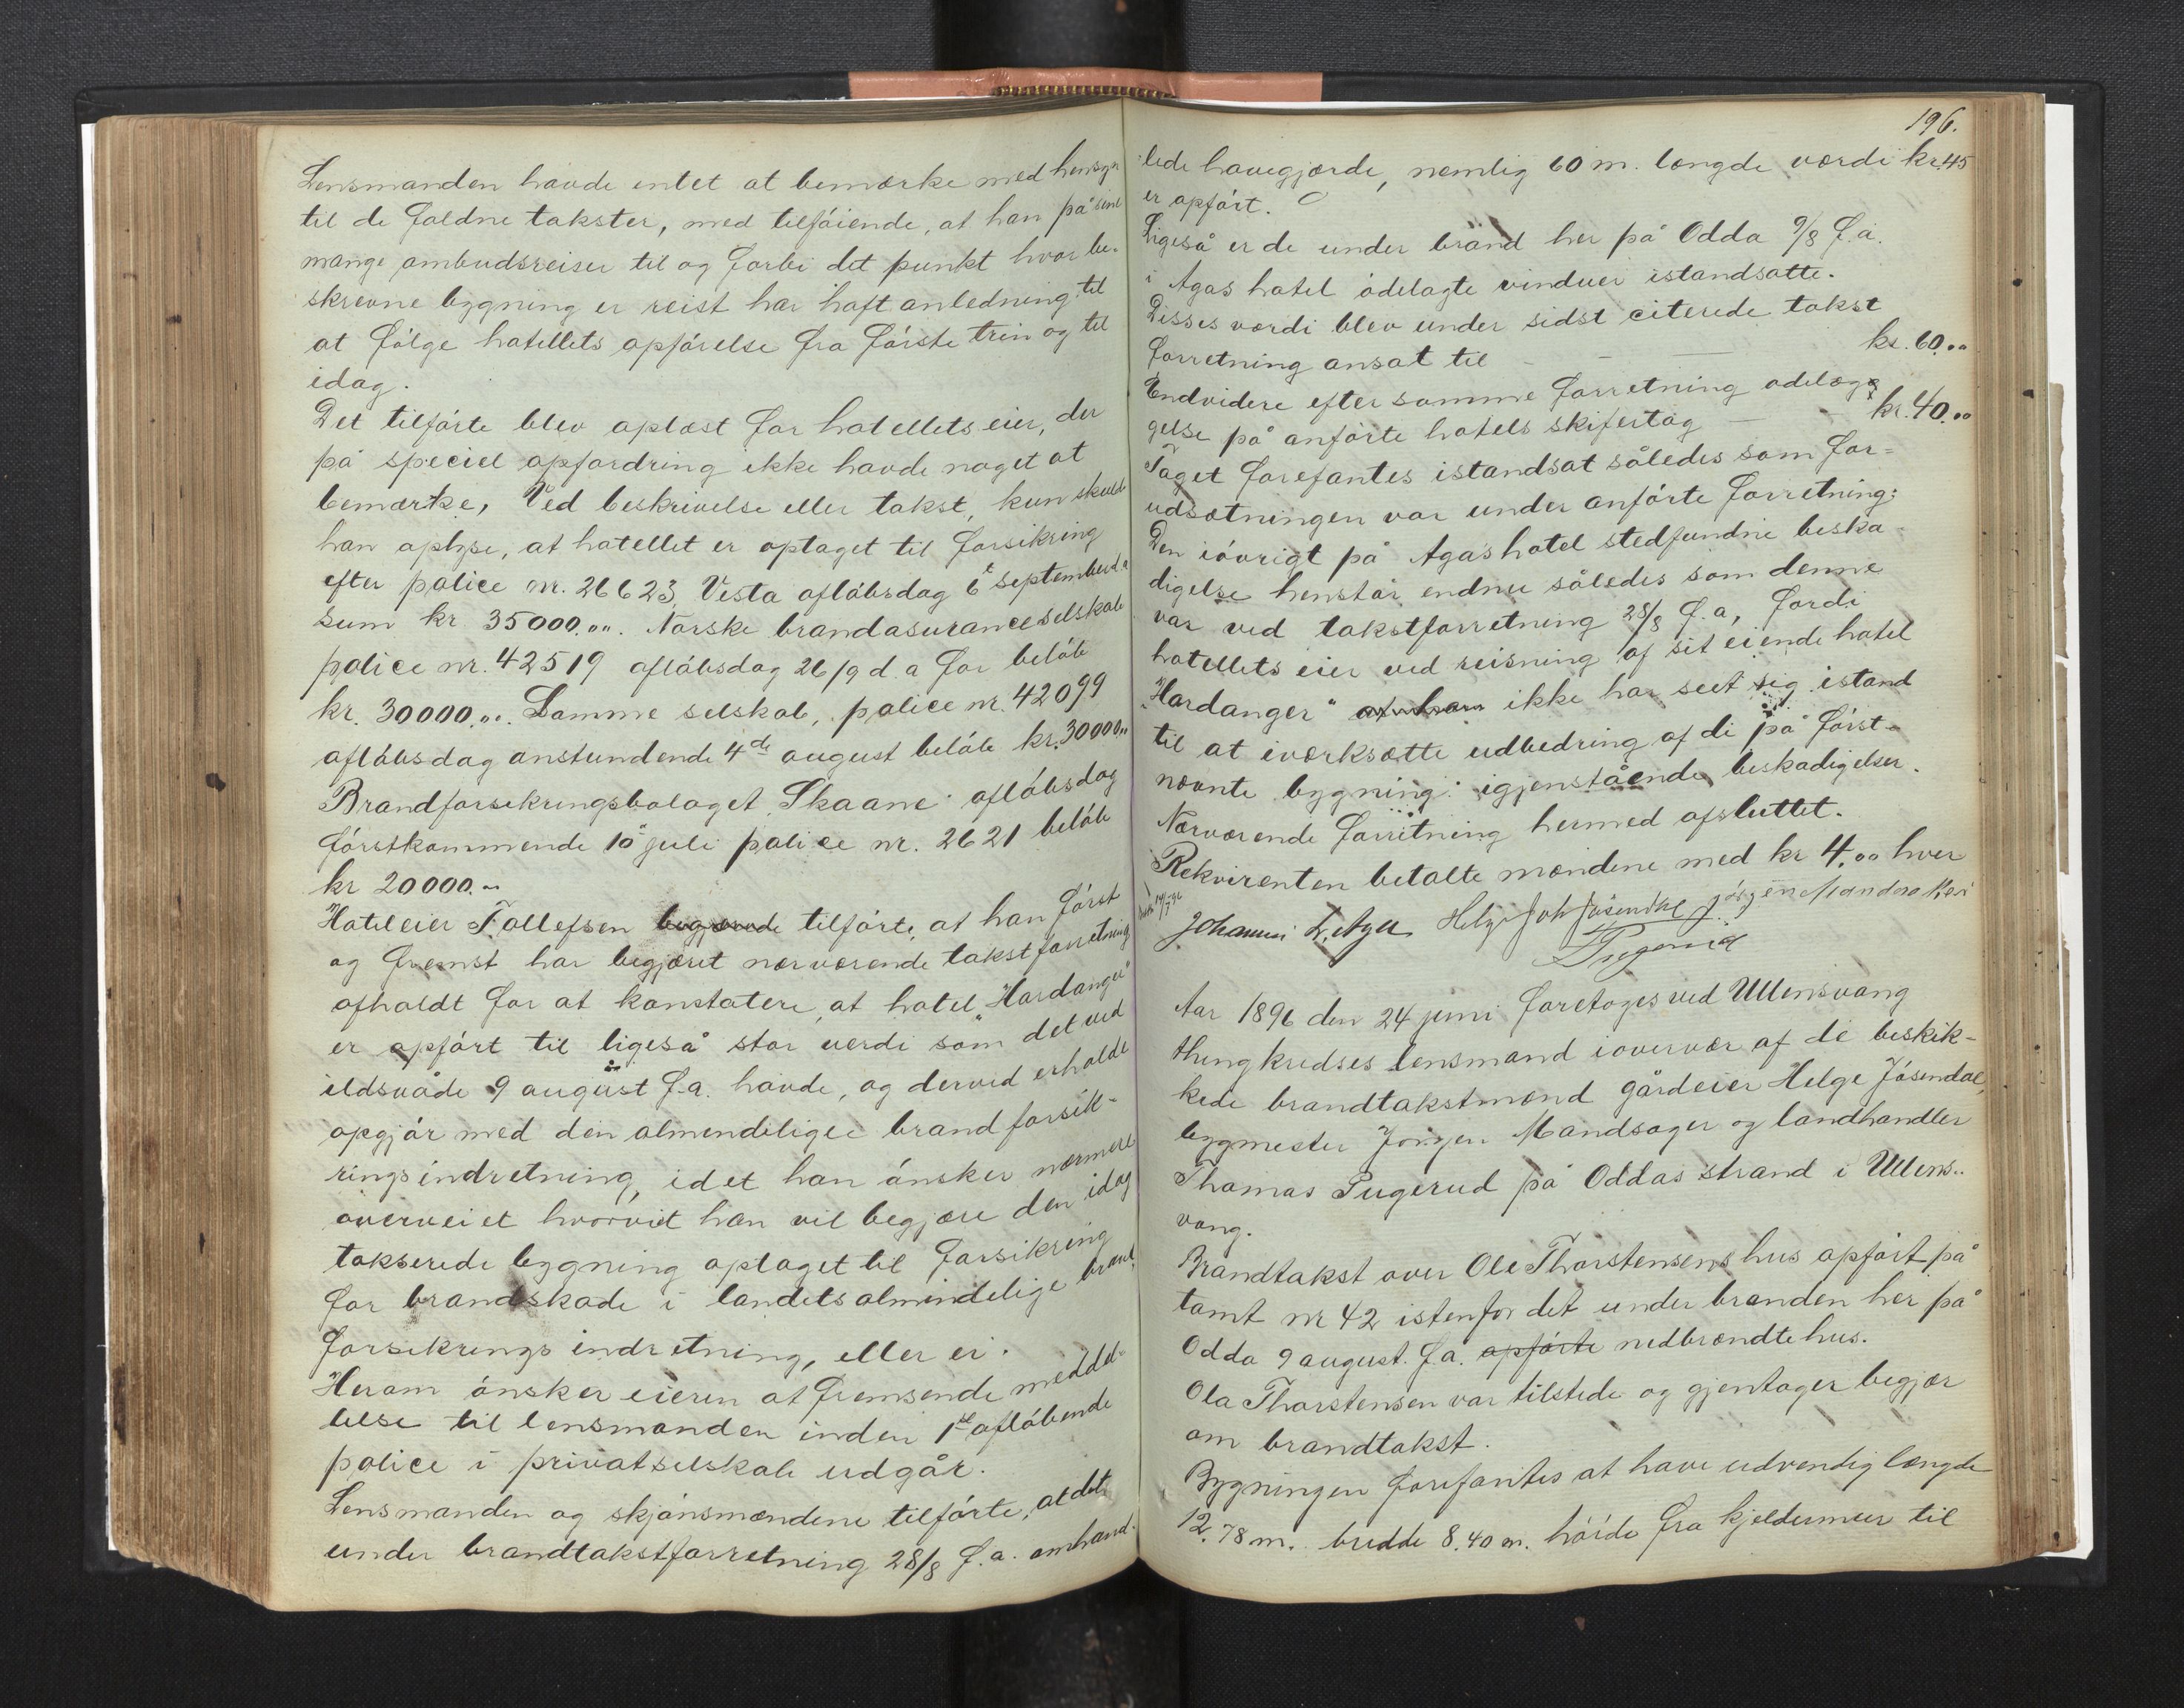 Lensmanden havde entet at bemærke med hensyn
til de faldne takster, med tilføiende, at han på sine
mange ombudsreiser til og forbi det punkt hvor be-
skrevne bygning er reist har haft anledning til
at følge hotellets opførelse fra første trin og til
idag.
Det tilførte blev oplæst for hotellets eier, der
på speciel opfordring ikke havde noget at
bemærke, Ved beskrivelse eller takst, kun skulde
han oplyse, at hotellet er optaget til forsikring
efter police nr. 26623, Vesta afløbsdag 6 september d.a
sum kr 35000.00. Norske brandasuranceselskab
police nr. 42519 afløbsdag 26/9 d.a for beløb
kr. 30000.00. Samme selskab, police nr. 42099
afløbsdag anstundende 4de august beløb kr. 30000.00
Brandforsikringsbolaget Skaane afløbsdag
førstkommende 10 juli police nr. 2621 beløb
kr 20000.00
Hoteleier Tollefsen begjærede tilførte, at han først
og fremst har begjæret nærværende takstforretning
afholdt for at konstatere, at hotel "Hardanger"
er opført til ligeså stor verdi som det ved
ildsvåde 9 august f.a. havde, og derved erholde
opgjør med den almendelige brandforsik-
ringsindretning, idet han ønsker nærmere
overveiet hvorvidt han vil begjære den idag
takserede bygning optaget til forsikring
for brandskade i landets almindelige brand-
forsikrings indretning, eller ei.
Herom ønsker eieren at fremsende meddel-
else til lensmanden inden 1ste afløbende
police i privatselskab udgår.
Lensmanden og skjønsmændene tilførte, at det
under brandtakstforretning 28/8 f.a. omhand-
196.
lede havegjærde, nemlig 60 m. længde værdi kr. 45
er opført.
Ligeså er de under brand her på Odda 9/8 f.a.
i Agas hotel ødelagte vinduer istandsatte.
Disses værdi blev under sidst citerede takst
forretning ansat til - - — kr. 60.00
Endvidere efter samme forretning ødelæg-
gelse på anførte hotels skifertag — - kr. 40.00
Taget forefantes istandsat således som for-
udsætningen var under anførte forretning.
Den iøvrigt på Agas hotel stedfundne beska-
digelse henstår endnu således som denne
var ved takstforretning 28/8 f.a, fordi
hotellets eier ved reisning af sit eiende hotel
"Hardanger" ikke har seet sig istand
til at iværksætte udbedring af de på først-
nævnte bygning igjenstående beskadigelser.
Nærværende forretning hermed afsluttet.
Rekvirenten betalte mændene med kr 4.00 hver
Johannes L. Aga Helge Joh Jøsendal Jørgen Mandsaker
T Pugerud
Aar 1896 den 24 juni foretoges ved Ullensvang
thingkredses lensmand iovervær af de beskik-
kede brandtakstmænd gårdeier Helge Jøsendal,
bygmester Jørgen Mandsager og landhandler
Thomas Pugerud på Oddas strand i Ullens-
vang.
Brandtakst over Ole Thorstensens hus opført på
tomt nr 42 istenfor det under branden her på
Odda 9 august. f.a. opførte nedbrændte hus.
Ola Thorstensen var tilstede og gjentager begjær
om brandtakst.
Bygningen forefantes at have udvendig længde
12.78 m. bredde 8.40 m. høide fra kjeldermur til